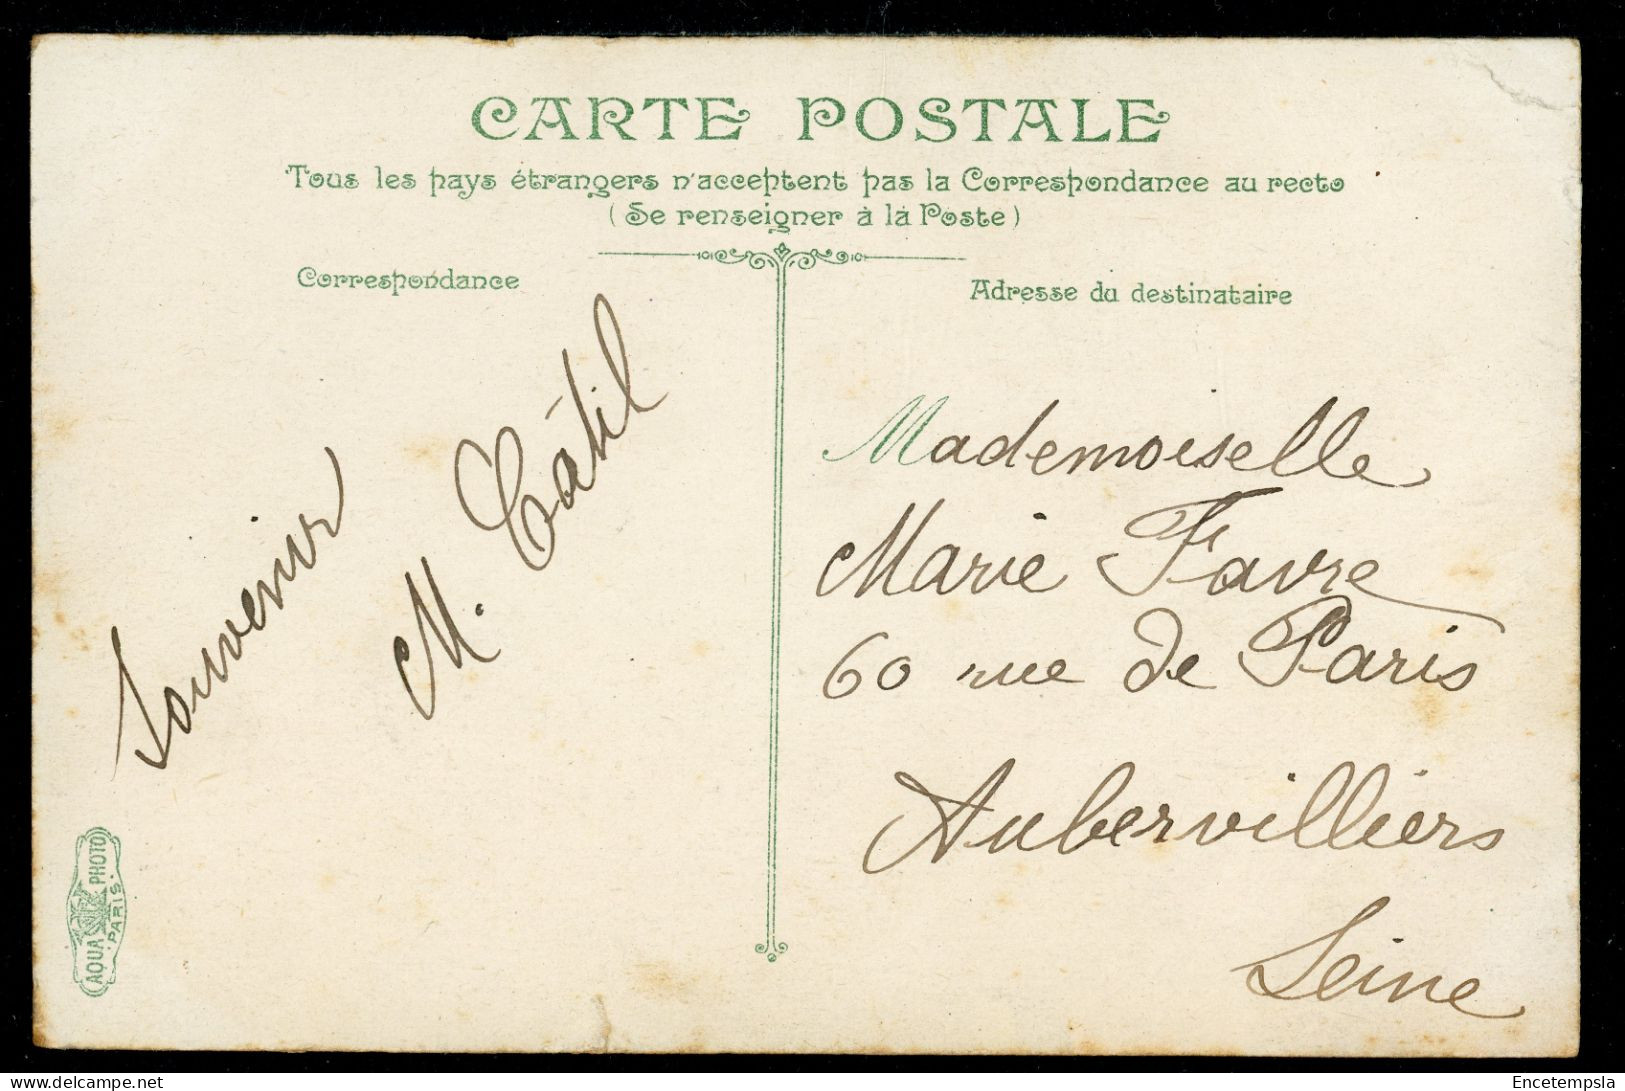 CARTE POSTALE
Tous les pays étrangers n'acceptent pas la Correspondance au recto
(Se renseigner à la Poste)
Correspondance
Adresse du destinataire
Souvenir
M.
Mademoiselle
Marie Favre
60 rue de Paris
Aubervilliers
Seine
AQUA PHOTO
PARIS.
www.delcampe.net
Encetempsla